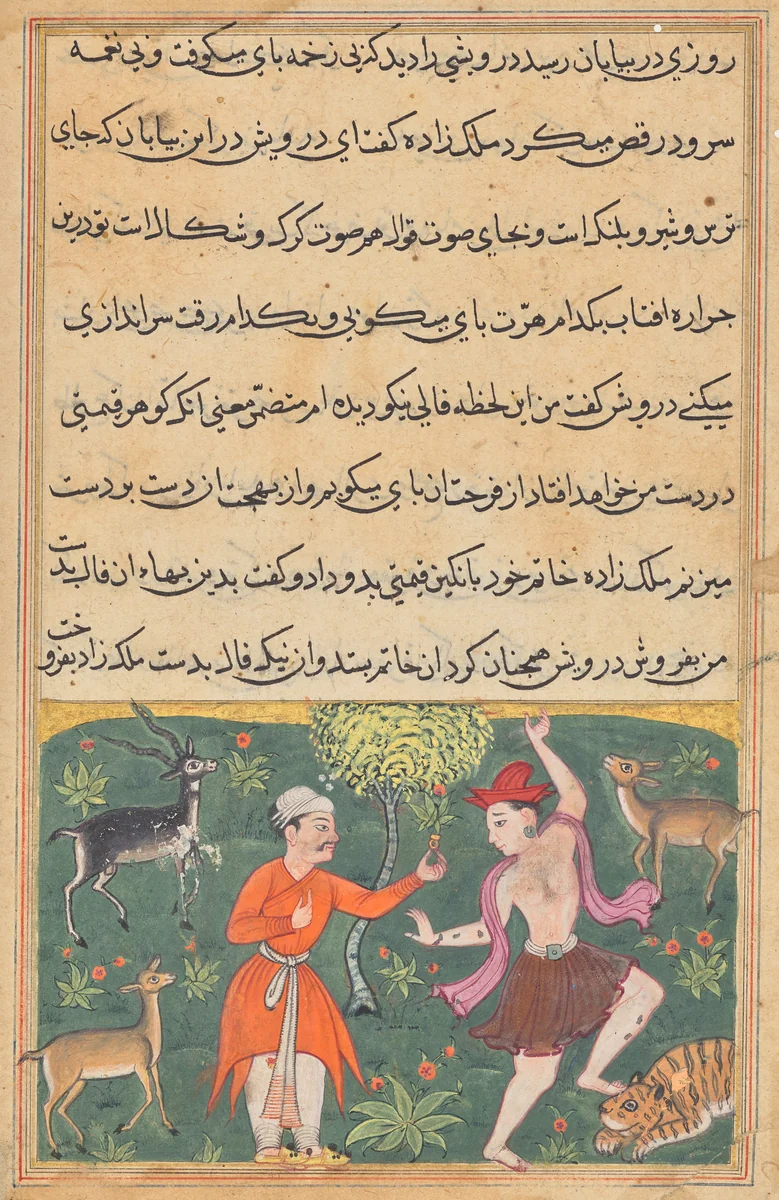 روزي در بیابان رسید درویشي را دید که بي زخمه باي میکوفت و بي نغمه
سرود رقص میکرد ملک زاده کفت اي درویش در این بیابان که جاي
ترس و شیر و بلنک است و بجاي صوت قوال هم صوت کرک و شکال است تو درین
حراره افتاب بکدام هزّت باي میکوبي و بکدام رقت سراندازي
میکنے درویش کفت من این لحظه فالي نیکو دیده ام متضمّن معني انک کوهر قیمتي
در دست من خواهد افتاد از فرحت ان باي میکوبم و از بهجت ان دست بر دست
میزنم ملک زاده خاتم خود با نکین قیمتي بدو داد و کفت بدین بهاء ان فال بدست
من بفروش درویش همچنان کرد ان خاتم بستد و ان نیک فال بدست ملک زاد بفروخت